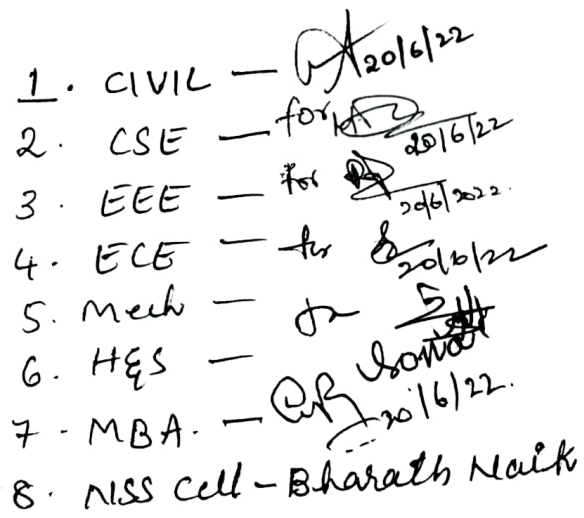 1. CIVIL — 20/6/22
2. CSE — for 20/6/22
3. EEE — for 20/6/2022.
4. ECE — for 20/6/22
5. Mech — for
6. H&S —
7. MBA. — 20/6/22.
8. NSS Cell - Bharath Naik